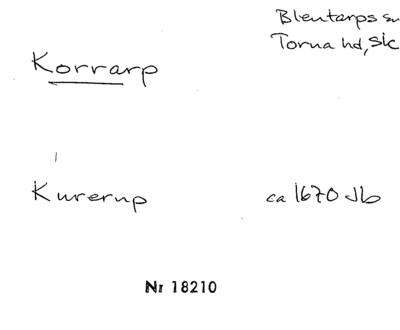 Blentarps sn
Torna hd, Sk
Korrarp
Kurerup ca 1670 Jb
Nr 18210